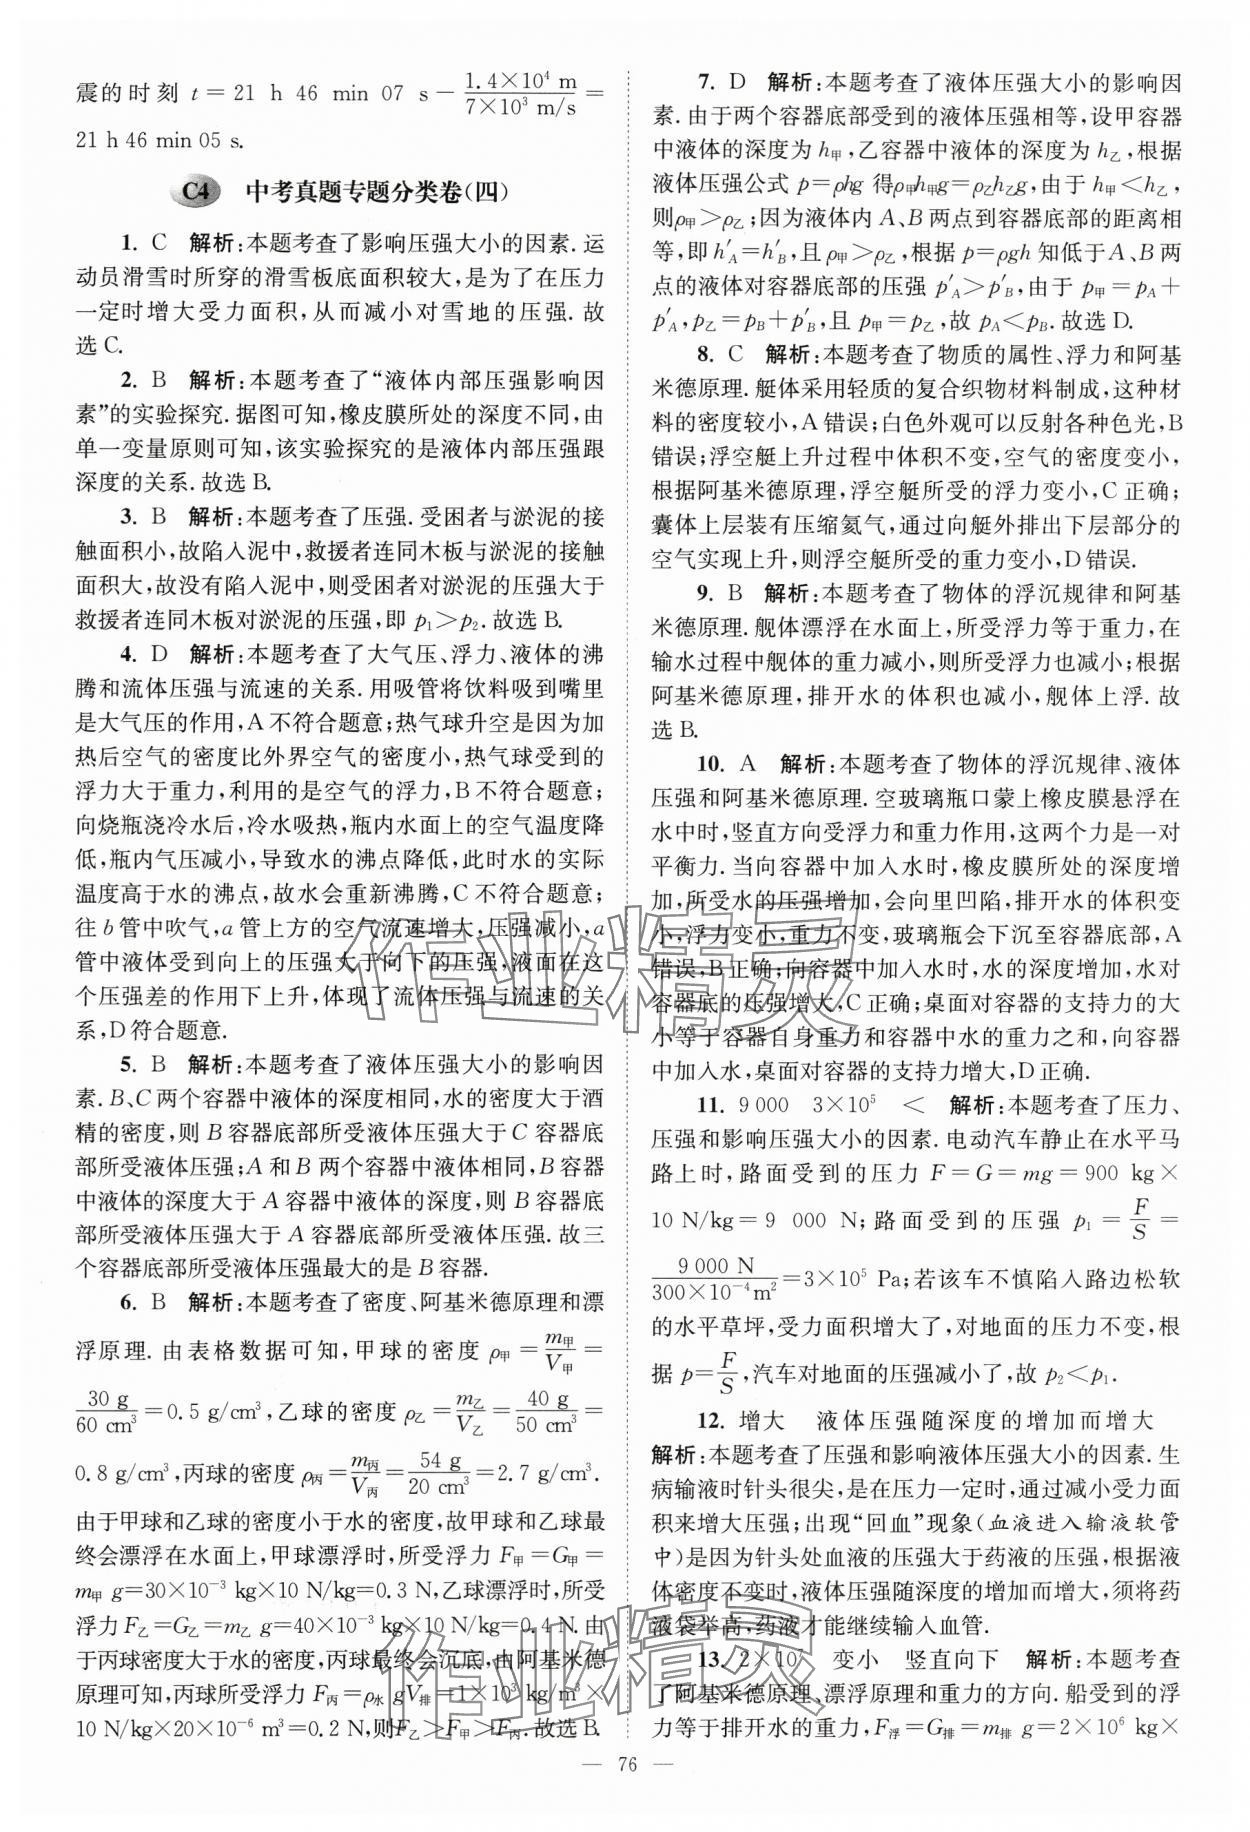 震的时刻 t=21 h 46 min 07 s－1.4×10⁴ m/7×10³ m/s=
21 h 46 min 05 s.
C4 中考真题专题分类卷(四)
1. C 解析:本题考查了影响压强大小的因素. 运
动员滑雪时所穿的滑雪板底面积较大,是为了在压力
一定时增大受力面积,从而减小对雪地的压强. 故
选 C.
2. B 解析:本题考查了“液体内部压强影响因
素”的实验探究. 据图可知,橡皮膜所处的深度不同,由
单一变量原则可知,该实验探究的是液体内部压强跟
深度的关系. 故选 B.
3. B 解析:本题考查了压强. 受困者与淤泥的接
触面积小,故陷入泥中,救援者连同木板与淤泥的接触
面积大,故没有陷入泥中,则受困者对淤泥的压强大于
救援者连同木板对淤泥的压强,即 p₁＞p₂. 故选 B.
4. D 解析:本题考查了大气压、浮力、液体的沸
腾和流体压强与流速的关系. 用吸管将饮料吸到嘴里
是大气压的作用,A 不符合题意;热气球升空是因为加
热后空气的密度比外界空气的密度小,热气球受到的
浮力大于重力,利用的是空气的浮力,B 不符合题意;
向烧瓶浇冷水后,冷水吸热,瓶内水面上的空气温度降
低,瓶内气压减小,导致水的沸点降低,此时水的实际
温度高于水的沸点,故水会重新沸腾,C 不符合题意;
往 b 管中吹气,a 管上方的空气流速增大,压强减小,a
管中液体受到向上的压强大于向下的压强,液面在这
个压强差的作用下上升,体现了流体压强与流速的关
系,D 符合题意.
5. B 解析:本题考查了液体压强大小的影响因
素. B、C 两个容器中液体的深度相同,水的密度大于酒
精的密度,则 B 容器底部所受液体压强大于 C 容器底
部所受液体压强;A 和 B 两个容器中液体相同,B 容器
中液体的深度大于 A 容器中液体的深度,则 B 容器底
部所受液体压强大于 A 容器底部所受液体压强. 故三
个容器底部所受液体压强最大的是 B 容器.
6. B 解析:本题考查了密度、阿基米德原理和漂
浮原理. 由表格数据可知,甲球的密度 ρ甲=m甲/V甲=
30 g/60 cm³=0.5 g/cm³,乙球的密度 ρ乙=m乙/V乙=40 g/50 cm³=
0.8 g/cm³,丙球的密度 ρ丙=m丙/V丙=54 g/20 cm³=2.7 g/cm³.
由于甲球和乙球的密度小于水的密度,故甲球和乙球最
终会漂浮在水面上,甲球漂浮时,所受浮力 F甲=G甲=
m甲 g=30×10⁻³ kg×10 N/kg=0.3 N,乙球漂浮时,所受
浮力 F乙=G乙=m乙 g=40×10⁻³ kg×10 N/kg=0.4 N. 由
于丙球密度大于水的密度,丙球最终会沉底,由阿基米德
原理可知,丙球所受浮力 F丙=ρ水 gV排=1×10³ kg/m³×
10 N/kg×20×10⁻⁶ m³=0.2 N,则F乙＞F甲＞F丙. 故选 B.
7. D 解析:本题考查了液体压强大小的影响因
素. 由于两个容器底部受到的液体压强相等,设甲容器
中液体的深度为 h甲,乙容器中液体的深度为 h乙,根据
液体压强公式 p=ρhg 得ρ甲h甲g=ρ乙h乙g,由于 h甲＜h乙,
则ρ甲＞ρ乙;因为液体内 A、B 两点到容器底部的距离相
等,即 h′A=h′B,且 ρ甲＞ρ乙,根据 p=ρgh 知低于 A、B 两
点的液体对容器底部的压强 p′A＞p′B,由于 p甲=pA+
p′A,p乙=pB+p′B,且 p甲=p乙,故 pA＜pB. 故选 D.
8. C 解析:本题考查了物质的属性、浮力和阿基
米德原理. 艇体采用轻质的复合织物材料制成,这种材
料的密度较小,A 错误;白色外观可以反射各种色光,B
错误;浮空艇上升过程中体积不变,空气的密度变小,
根据阿基米德原理,浮空艇所受的浮力变小,C 正确;
囊体上层装有压缩氦气,通过向艇外排出下层部分的
空气实现上升,则浮空艇所受的重力变小,D 错误.
9. B 解析:本题考查了物体的浮沉规律和阿基
米德原理. 舰体漂浮在水面上,所受浮力等于重力,在
输水过程中舰体的重力减小,则所受浮力也减小;根据
阿基米德原理,排开水的体积也减小,舰体上浮. 故
选 B.
10. A 解析:本题考查了物体的浮沉规律、液体
压强和阿基米德原理. 空玻璃瓶口蒙上橡皮膜悬浮在
水中时,竖直方向受浮力和重力作用,这两个力是一对
平衡力. 当向容器中加入水时,橡皮膜所处的深度增
加,所受水的压强增加,会向里凹陷,排开水的体积变
小,浮力变小,重力不变,玻璃瓶会下沉至容器底部,A
错误,B 正确;向容器中加入水时,水的深度增加,水对
容器底的压强增大,C 正确;桌面对容器的支持力的大
小等于容器自身重力和容器中水的重力之和,向容器
中加入水,桌面对容器的支持力增大,D 正确.
11. 9 000 3×10⁵ ＜ 解析:本题考查了压力、
压强和影响压强大小的因素. 电动汽车静止在水平马
路上时,路面受到的压力 F=G=mg=900 kg×
10 N/kg=9 000 N;路面受到的压强 p₁=F/S=
9 000 N/300×10⁻⁴m²=3×10⁵ Pa;若该车不慎陷入路边松软
的水平草坪,受力面积增大了,对地面的压力不变,根
据 p=F/S,汽车对地面的压强减小了,故 p₂＜p₁.
12. 增大 液体压强随深度的增加而增大
解析:本题考查了压强和影响液体压强大小的因素. 生
病输液时针头很尖,是在压力一定时,通过减小受力面
积来增大压强;出现“回血”现象(血液进入输液软管
中)是因为针头处血液的压强大于药液的压强,根据液
体密度不变时,液体压强随深度的增加而增大,须将药
液袋举高,药液才能继续输入血管.
13. 2×10⁷ 变小 竖直向下 解析:本题考查
了阿基米德原理、漂浮原理和重力的方向. 船受到的浮
力等于排开水的重力,F浮=G排=m排 g=2×10⁶ kg×
— 76 —
作业精灵
作业精灵